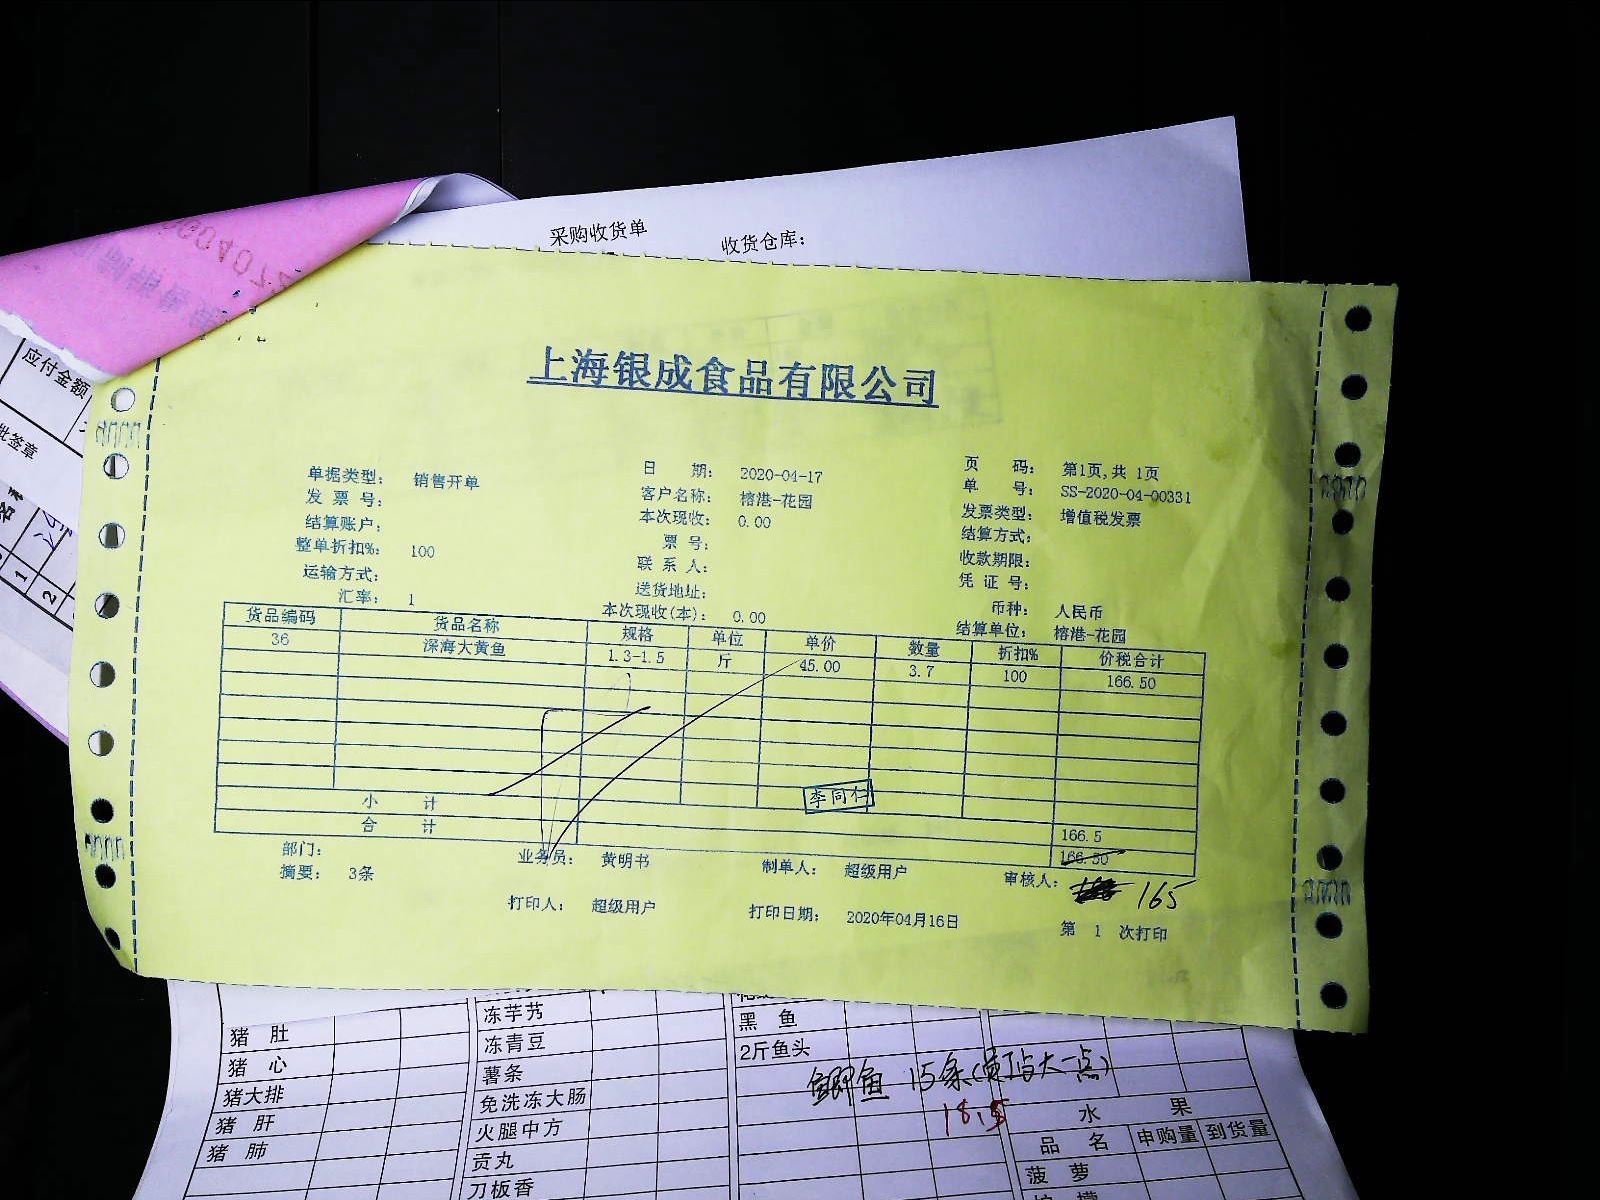 采购收货单 收货仓库：
应付金额
批签章
1
2
上海银成食品有限公司
单据类型： 销售开单 日 期： 2020-04-17 页 码： 第1页,共 1页
发 票 号： 客户名称： 榕港-花园 单 号： SS-2020-04-00331
结算账户： 本次现收： 0.00 发票类型： 增值税发票
整单折扣%： 100 票 号： 结算方式：
运输方式： 联 系 人： 收款期限：
汇率： 1 送货地址： 凭 证 号：
本次现收(本)： 0.00 币种： 人民币
结算单位： 榕港-花园
货品编码 货品名称 规格 单位 单价 数量 折扣% 价税合计
36 深海大黄鱼 1.3-1.5 斤 45.00 3.7 100 166.50
李同仁
小 计 166.5
合 计 166.50
部门： 业务员： 黄明书 制单人： 超级用户 审核人： 165
摘要： 3条 打印人： 超级用户 打印日期： 2020年04月16日 第 1 次打印
猪 肚 冻芋艿 黑 鱼
猪 心 冻青豆 2斤鱼头
猪大排 薯条 鲫鱼 15条(黄占大一点)
猪 肝 免洗冻大肠 18.5 水 果
猪 肺 火腿中方 品 名 申购量 到货量
贡丸 菠 萝
刀板香